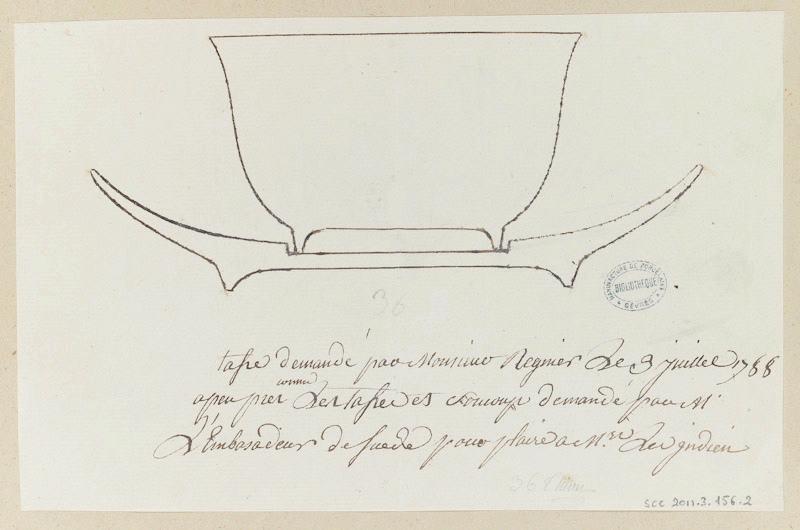 MANUFACTURE DE PORCELAINE
BIBLIOTHÈQUE
SÈVRES
36
tasse demandé par Monsieur Regnier Le 3 juillet 1788
apeu prer comme Les tasse et soucoup demandé par Mr
L'Embasadeur de suede pour plaire a M.rs Les jndien
36
SCC 2011.3.156.2